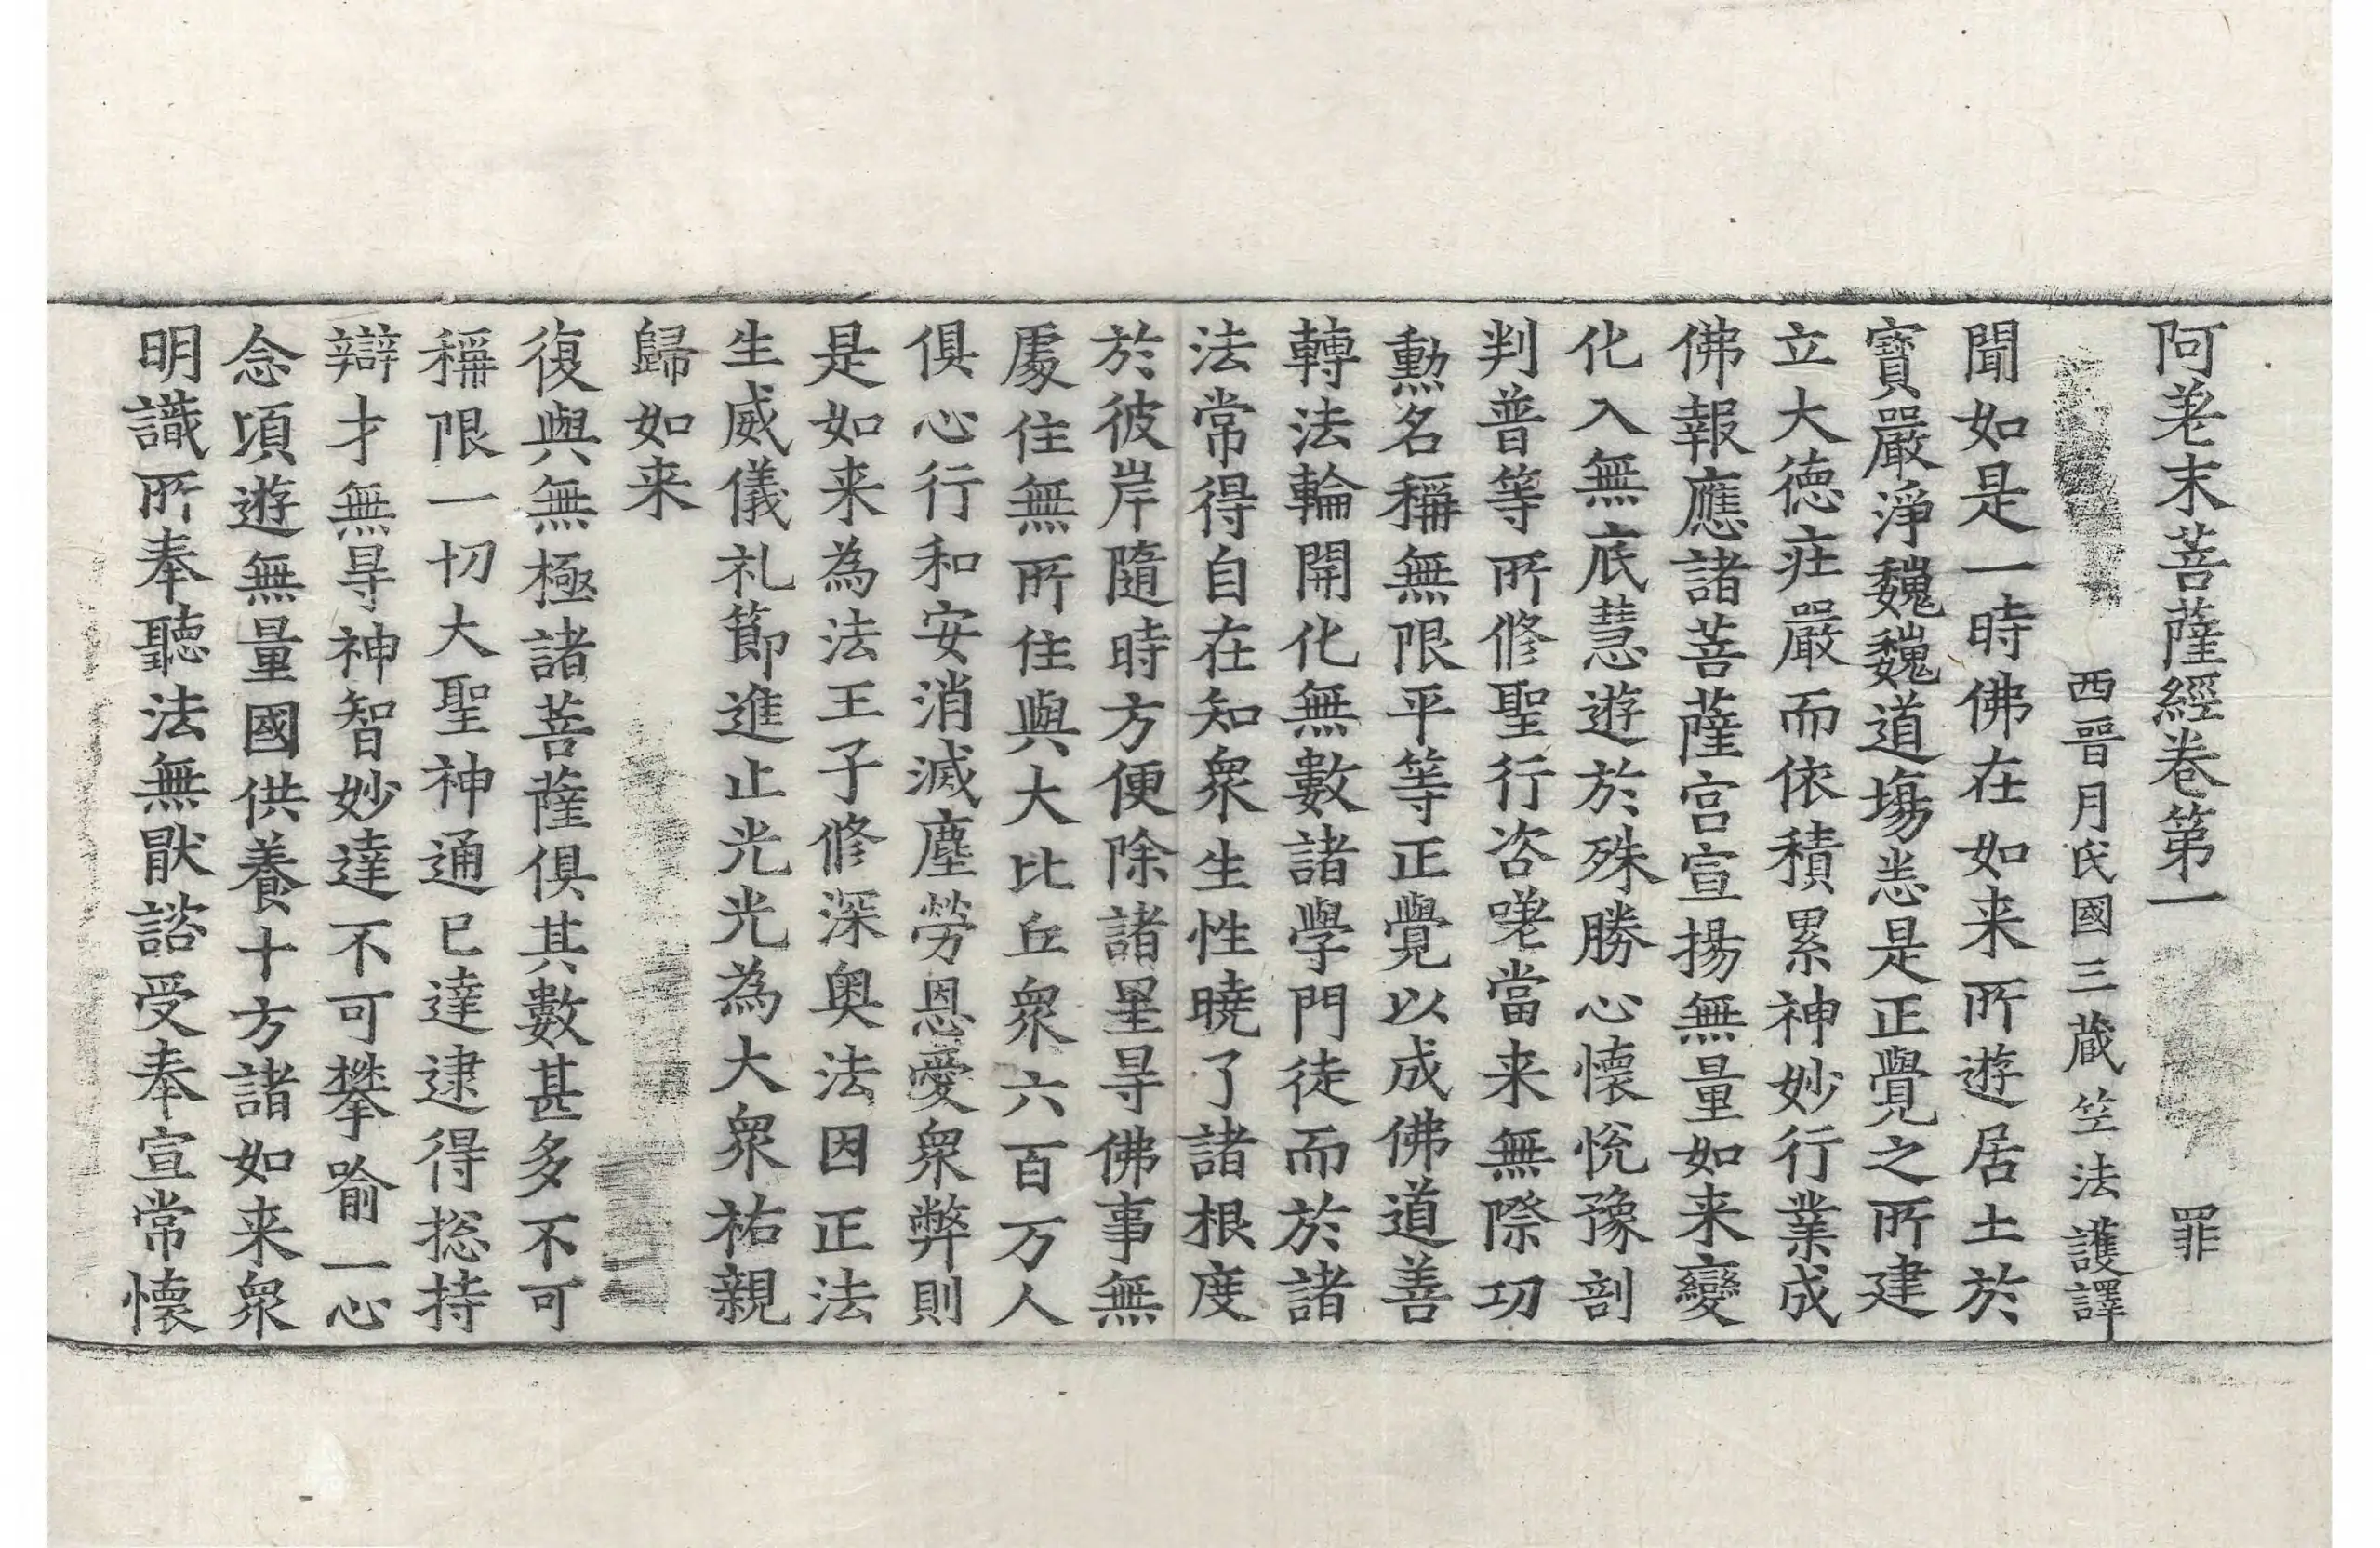 阿差末菩薩經卷第一　罪
西晉月氏國三蔵竺法護譯
聞如是一時佛在如来所遊居土於
寶嚴淨巍巍道場恙是正覺之所建
立大徳莊嚴而依積累神妙行業成
佛報應諸菩薩宮宣揚無量如来變
化入無底慧遊於殊勝心懷悅豫剖
判普等所修聖行咨嗟當来無際功
勲名稱無限平等正覺以成佛道善
轉法輪開化無數諸學門徒而於諸
法常得自在知衆生性曉了諸根度
於彼岸隨時方便除諸罣㝵佛事無
處住無所住與大比丘衆六百万人
俱心行和安消滅塵勞恩愛衆弊則
是如来為法王子修深奥法因正法
生威儀礼節進止光光為大衆祐親
歸如来
復與無極諸菩薩俱其數甚多不可
稱限一切大聖神通已達逮得揔持
辯才無㝵神智妙達不可攀喻一心
念頃遊無量國供養十方諸如来衆
明識所奉聽法無猒諮受奉宣常懷